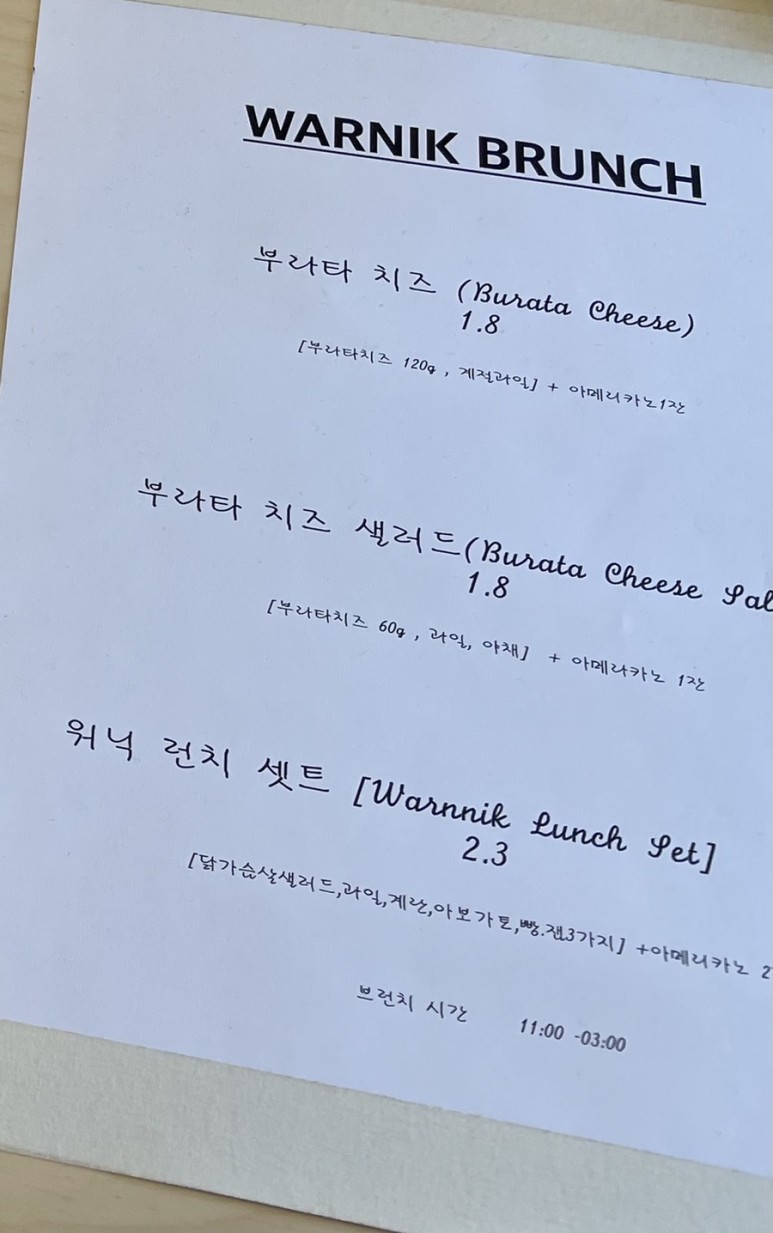 WARNIK BRUNCH
부라타 치즈 (Burata Cheese)
1.8
[부라타치즈 120g , 계절과일] + 아메리카노1잔
부라타 치즈 샐러드(Burata Cheese Sal
1.8
[부라타치즈 60g , 과일, 야채] + 아메라카노 1잔
워닉 런치 셋트 [Warnnik Lunch Set]
2.3
[닭가슴살샐러드,과일,계란,아보가토,빵.잼3가지] +아메리카노 2
브런치 시간 11:00 -03:00